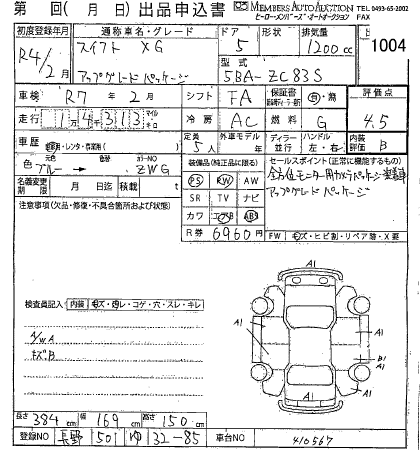 第 回( 月 日)出品申込書 MEMBERS AUTO AUCTION TEL 0493-65-2002
ヒーローメンバーズ・オートオークション FAX
初度登録年月 通称車名・グレード ドア 形状 排気量
R4/2月 スイフト XG 5 1200cc 1004
アップグレードパッケージ 型式 5BA-ZC83S
車検 R7年2月 シフト FA 保証書 有・無 評価点
走行 14313 マイル キロ 冷房 AC 燃料 G 4.5
車歴 自家用・レンタ・事業用 定員 5人 外車モデル 年 ディーラー 並行 ハンドル 左・右 内装評価 B
色 ブルー → 替色 カラーNO ZWG 装備品(純正品に限る) セールスポイント(正常に機能するもの)
名義変更期限 月 日迄 積載 t PS PW AW
アップグレードパッケージ
注意事項(欠品・修復・不具合箇所および状態) SR TV ナビ
カワ エアB ABS
R券 6960円 FW キズ・ヒビ割・リペア跡・X要
検査員記入 内装 キズ・汚レ・コゲ・穴・スレ・キレ
A/W A
キズB
A1 A1 A1 B1 A1 A1
長さ 384cm 幅 169cm 高さ 150cm
登録NO 長野 501 ゆ 32-85 車台NO 410567